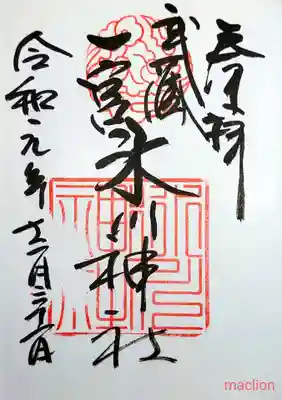 奉拝
武蔵
一宮氷川神社
令和元年
maclion